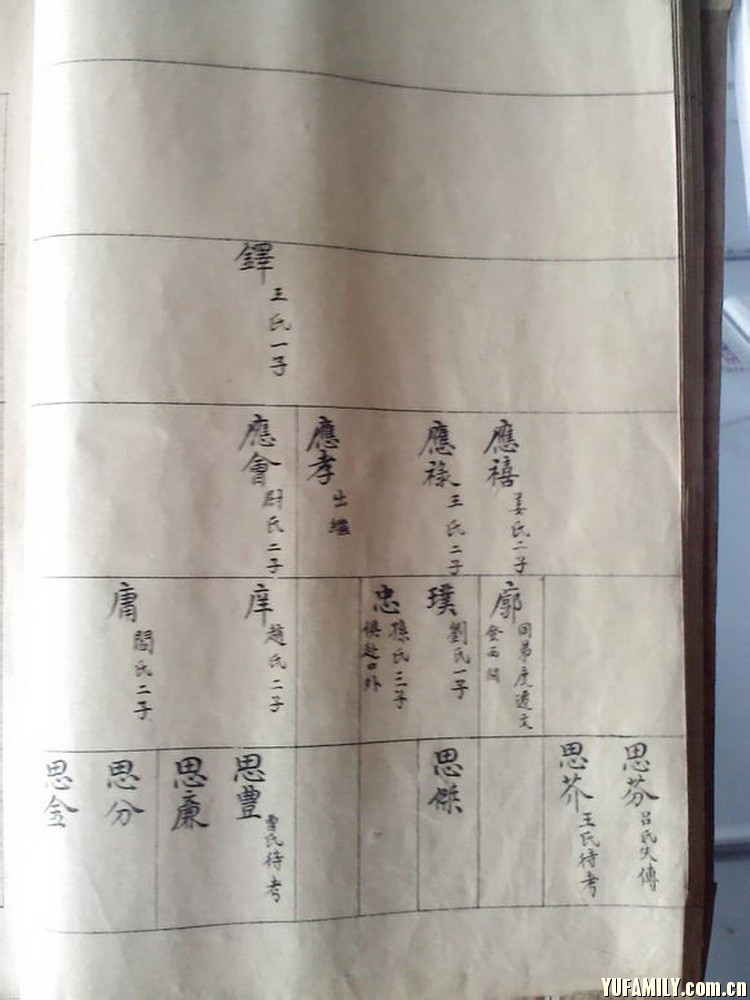 鐸
王氏一子
應禧
姜氏二子
應祿
王氏二子
應孝
出繼
應會
尉氏二子
廓
同弟度遷文
登西關
璞
劉氏一子
忠
孫氏三子
俱赴口外
庠
趙氏二子
庸
閻氏二子
思芬
呂氏失傳
思芥
王氏待考
思傑
思豐
曹氏待考
思廉
思分
思金
YUFAMILY.com.cn